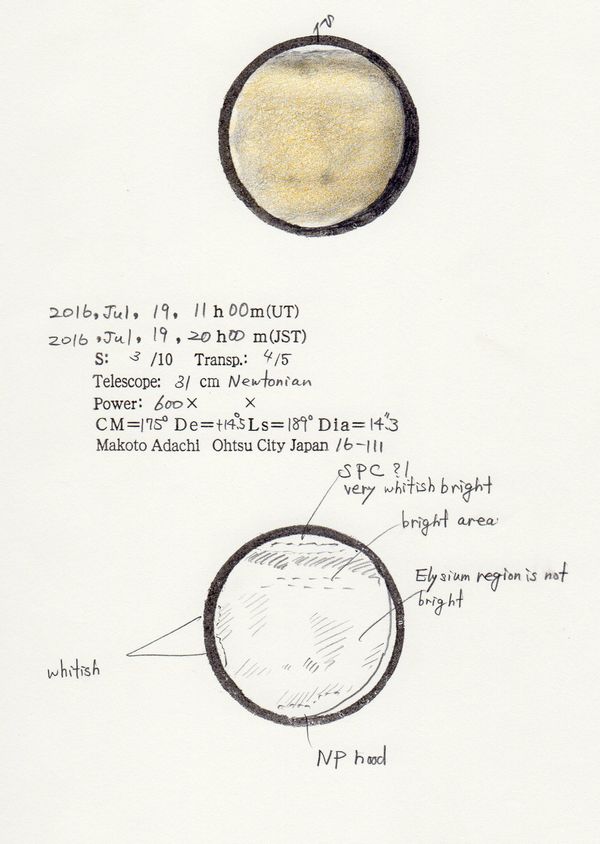 S
2016, Jul, 19, 11 h 00m(UT)
2016, Jul, 19, 20 h00 m(JST)
S: 3 /10 Transp.: 4/5
Telescope: 31 cm Newtonian
Power: 600× ×
CM=175° De=+14.5 Ls=189° Dia=14"3
Makoto Adachi Ohtsu City Japan 16-111
SPC ?!
very whitish bright
bright area
Elysium region is not
bright
whitish
NP hood